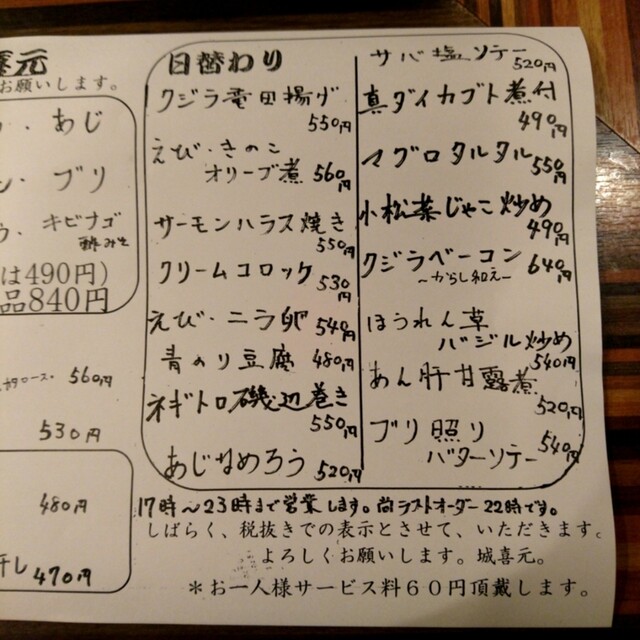 喜元
お願いします。
・あじ
・ブリ
・キビナゴ
酢みそ
は490円)
品840円
560円
530円
480円
干し 470円
日替わり
クジラ竜田揚げ
550円
えび・きのこ
オリーブ煮 560円
サーモンハラス焼き
550円
クリームコロッケ 530円
えび・ニラ卵 540円
青のり豆腐 480円
ネギトロ磯辺巻き
550円
あじなめろう 520円
サバ塩ソテー
520円
真ダイカブト煮付
490円
マグロタルタル 550円
小松菜じゃこ炒め
490円
クジラベーコン 640円
〜からし和え〜
ほうれん草
バジル炒め
540円
あん肝甘露煮
520円
ブリ照り
バターソテー 540円
17時〜23時まで営業します。尚ラストオーダー22時です。
しばらく、税抜きでの表示とさせて、いただきます。
よろしくお願いします。城喜元。
＊お一人様サービス料60円頂戴します。